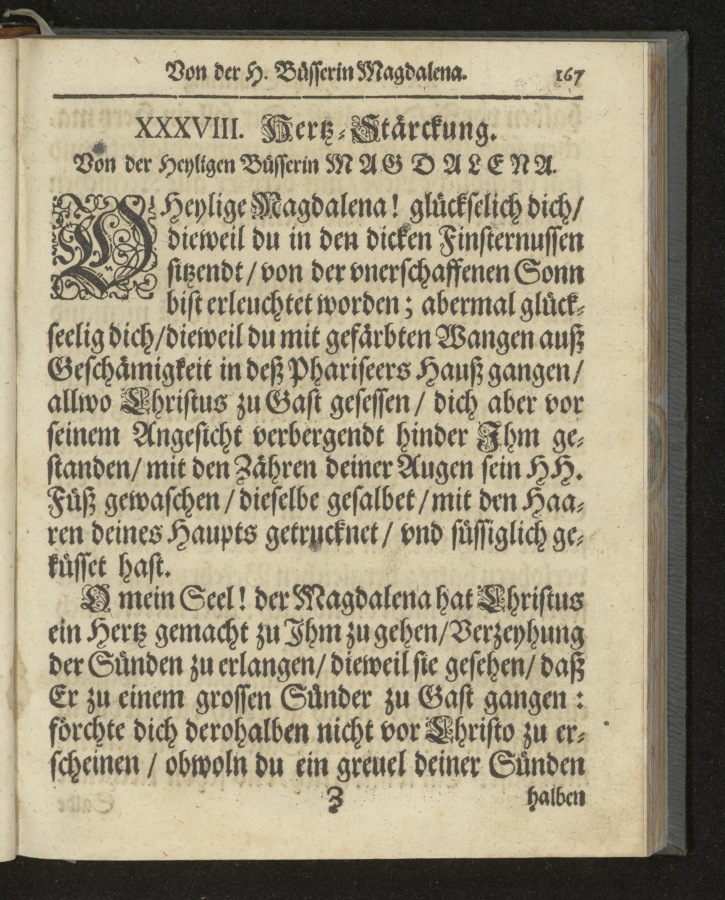 Von der H. Büsserin Magdalena. 167
XXXVIII. Hertz-Stärckung.
Von der Heyligen Büsserin MAGDALENA.
O Heylige Magdalena! glückselich dich/
dieweil du in den dicken Finsternussen
sitzendt/ von der vnerschaffenen Sonn
bist erleuchtet worden; abermal glück-
seelig dich/ dieweil du mit gefärbten Wangen auß
Geschämigkeit in deß Phariseers Hauß gangen/
allwo Christus zu Gast gesessen/ dich aber vor
seinem Angesicht verbergendt hinder Ihm ge-
standen/ mit den Zähren deiner Augen sein HH.
Füß gewaschen/ dieselbe gesalbet/ mit den Haa-
ren deines Haupts getrucknet/ vnd süssiglich ge-
küsset hast.
O mein Seel! der Magdalena hat Christus
ein Hertz gemacht zu Ihm zu gehen/ Verzeyhung
der Sünden zu erlangen/ dieweil sie gesehen/ daß
Er zu einem grossen Sünder zu Gast gangen:
förchte dich derohalben nicht vor Christo zu er-
scheinen/ obwoln du ein greuel deiner Sünden
Z halben